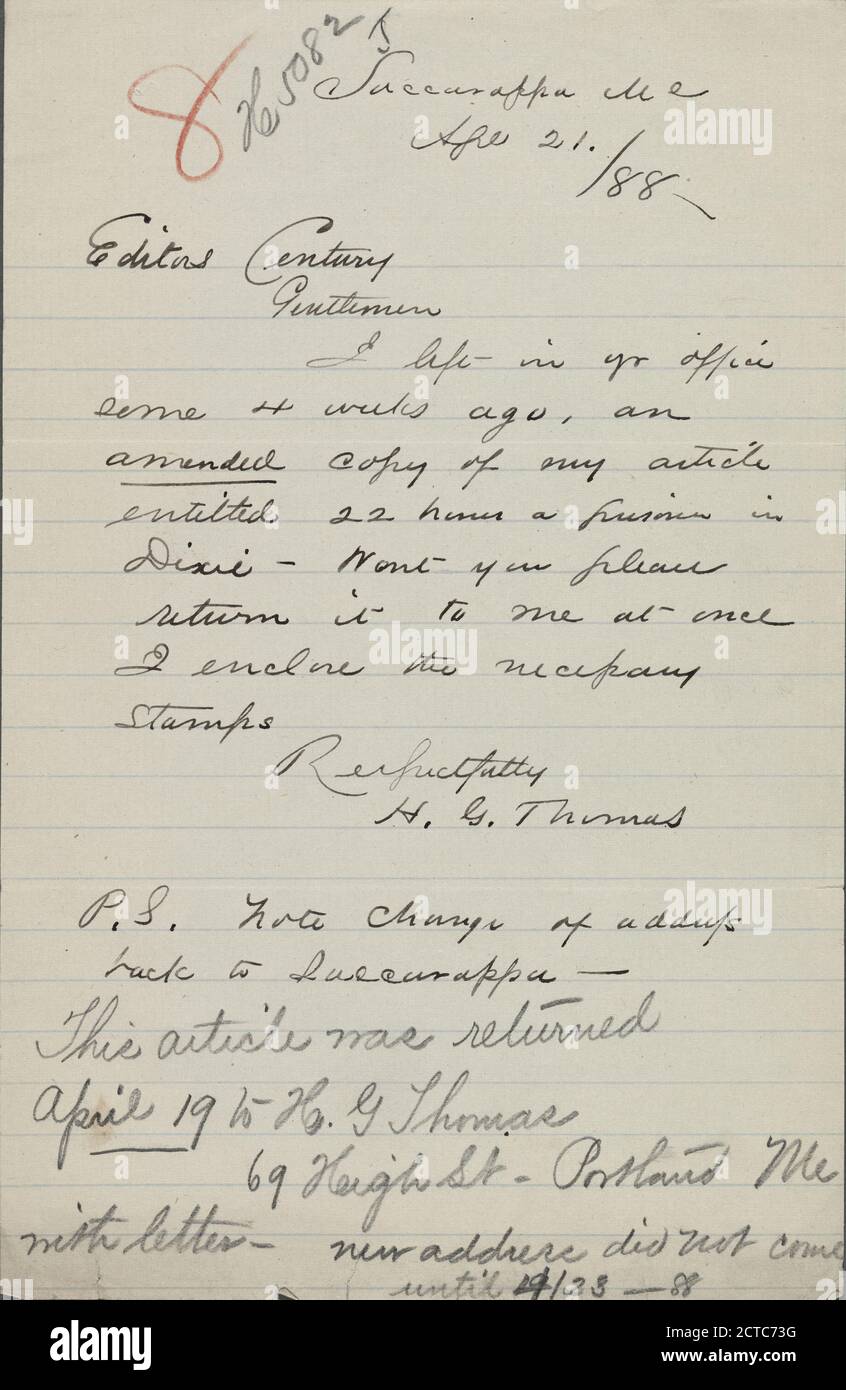 8 H 5082
Saccarappa Me
Apl 21. /88
Editors Century
Gentlemen
I left in yr office
some 4 weeks ago, an
amended copy of my article
entitled 22 hours a prisoner in
Dixie - Wont you please
return it to me at once
I enclose the necessary
stamps
Respectfully
H. G. Thomas
P.S. Note change of address
back to Saccarappa —
This article was returned
April 19 to H. G Thomas
69 High St - Portland Me
with letter - new address did not come
until /23 — 88
alamy
alamy
alamy
alamy
Image ID: 2CTC73G
www.alamy.com